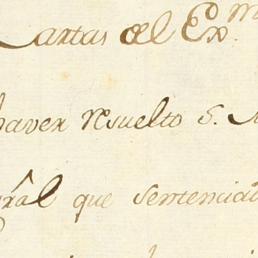 Cartas del Ex.mo
haver resuelto S. M
gral que sentencia